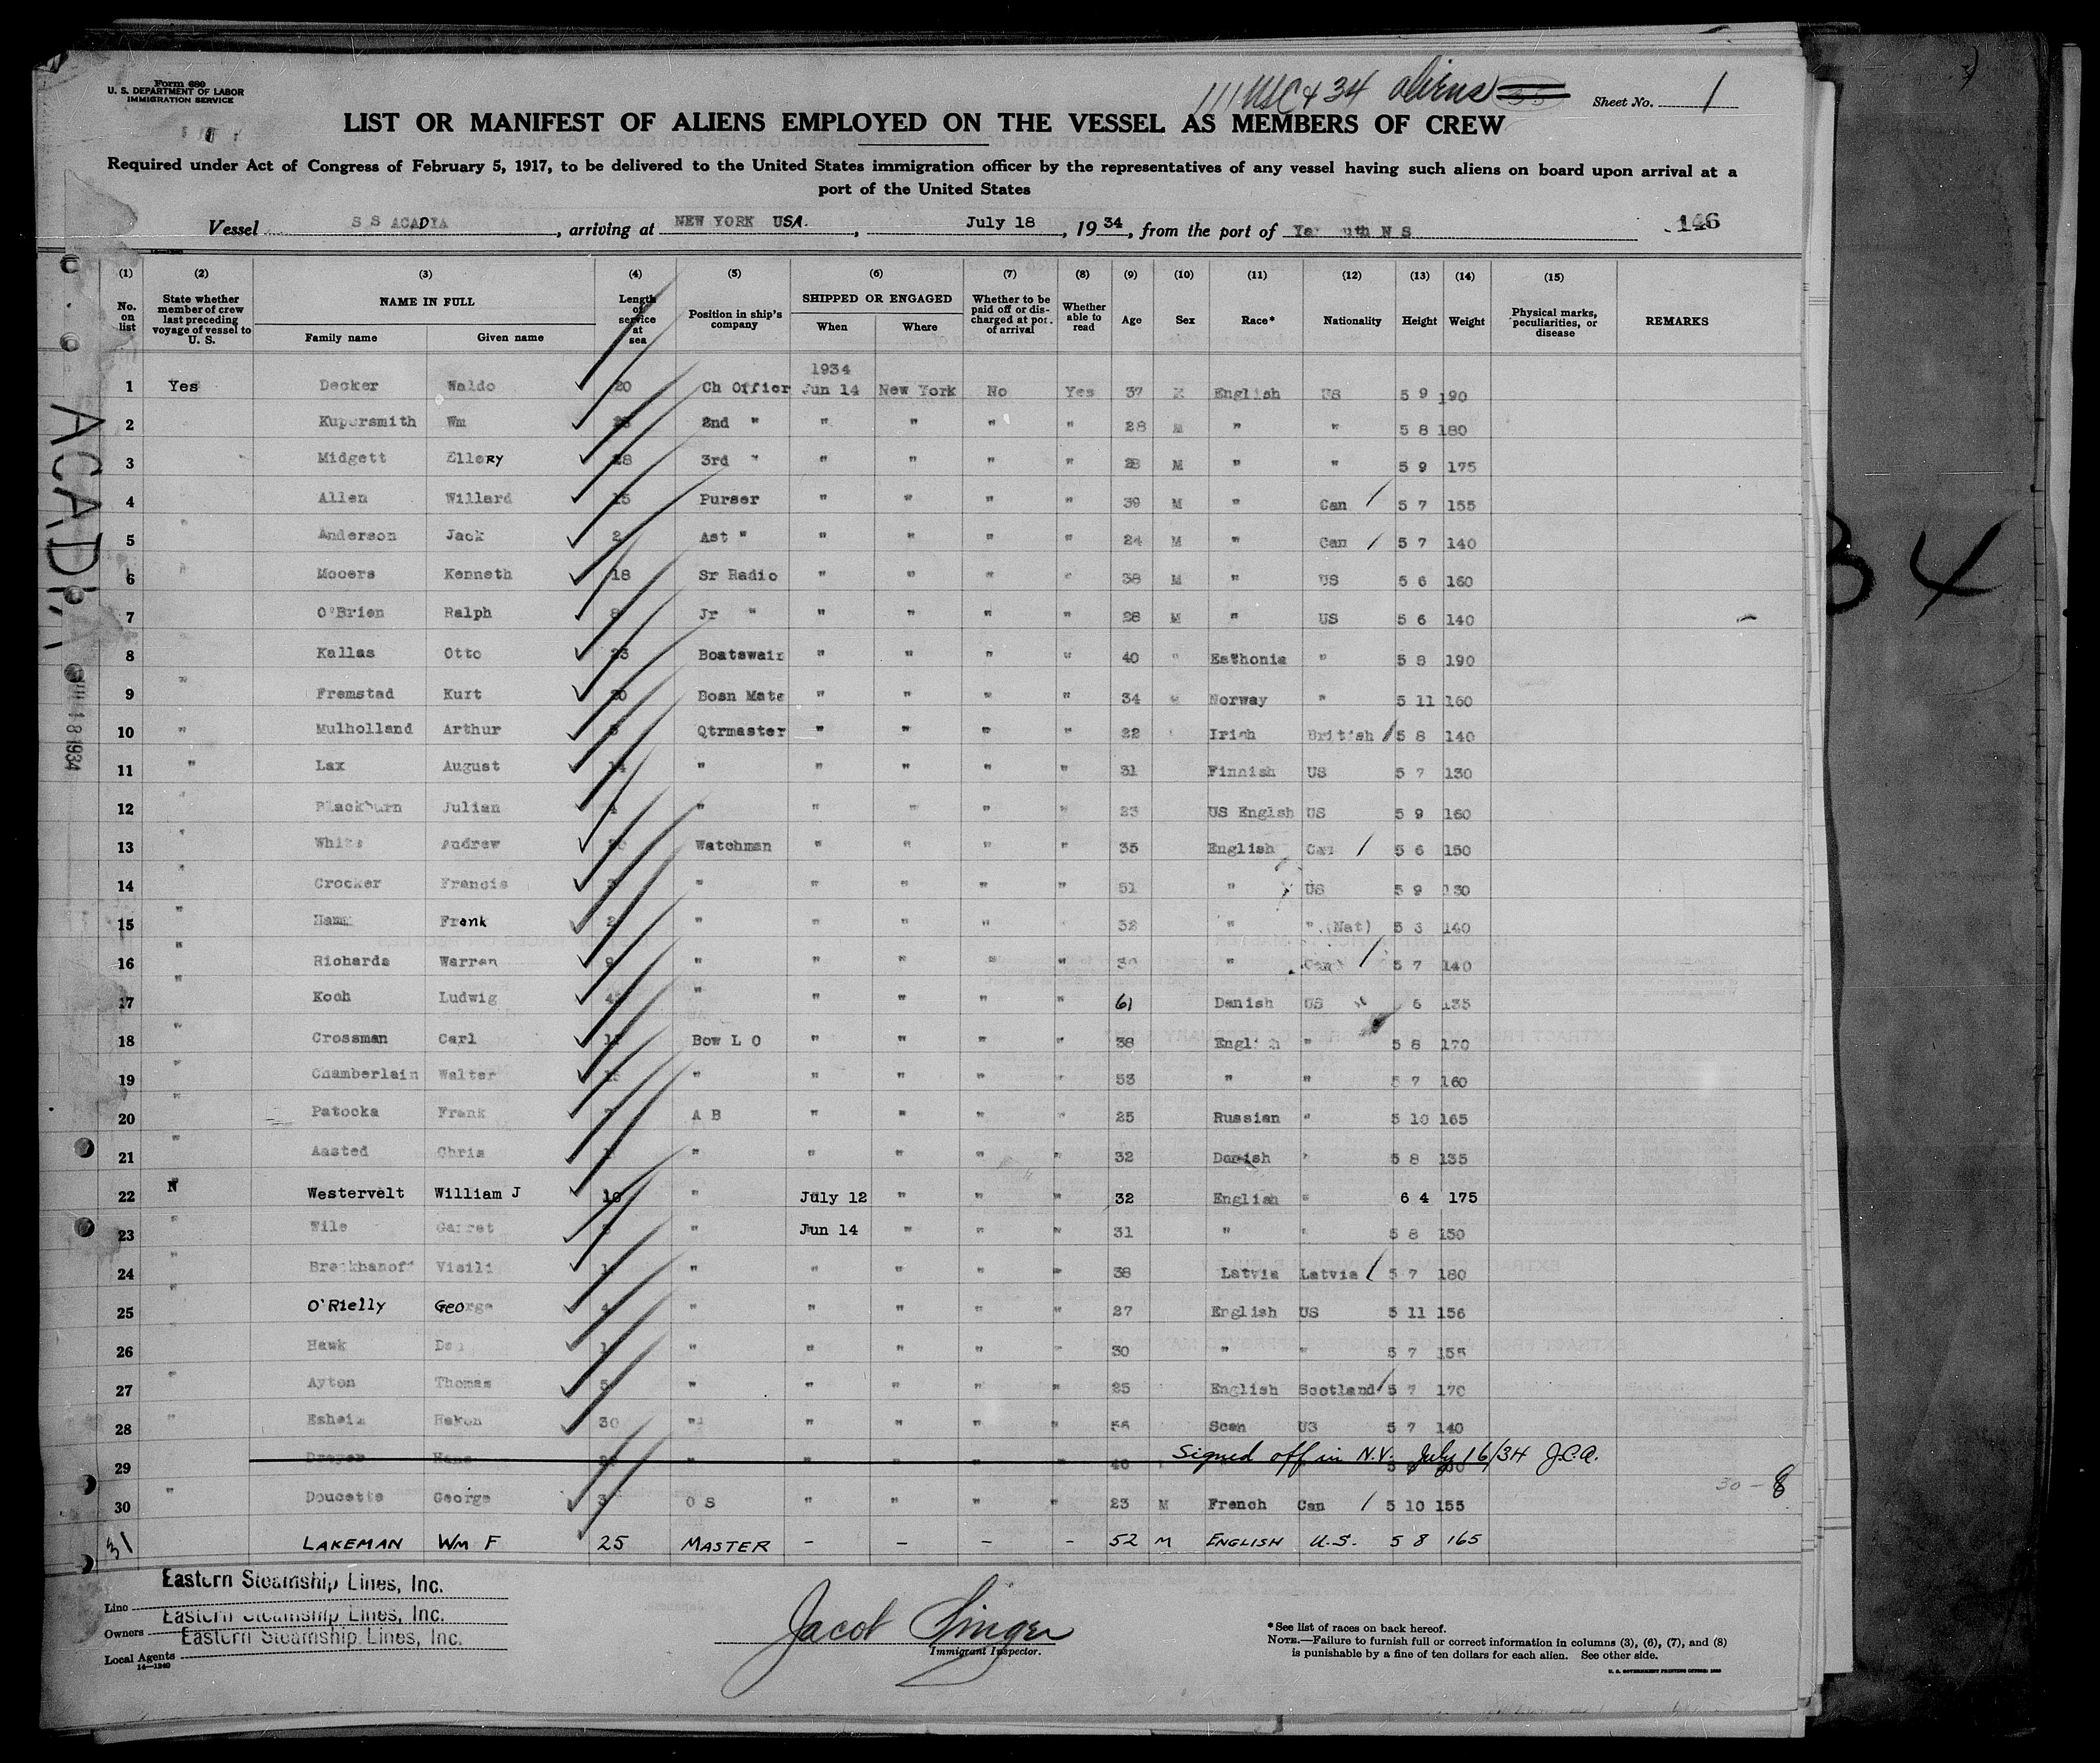 Form 680
U. S. DEPARTMENT OF LABOR
IMMIGRATION SERVICE
111 USC + 34 aliens
Sheet No. 1
LIST OR MANIFEST OF ALIENS EMPLOYED ON THE VESSEL AS MEMBERS OF CREW
Required under Act of Congress of February 5, 1917, to be delivered to the United States immigration officer by the representatives of any vessel having such aliens on board upon arrival at a
port of the United States
Vessel S S ACADIA, arriving at NEW YORK USA., July 18, 1934, from the port of N S
146
(1) (2) (3) (4) (5) (6) (7) (8) (9) (10) (11) (12) (13) (14) (15)
No. on list
State whether member of crew last preceding voyage of vessel to U. S.
NAME IN FULL
Family name Given name
Length of service at sea
Position in ship's company
SHIPPED OR ENGAGED
When Where
Whether to be paid off or discharged at port of arrival
Whether able to read
Age
Sex
Race*
Nationality
Height
Weight
Physical marks, peculiarities, or disease
REMARKS
1934
1 Yes Decker Waldo 20 Ch Officer Jun 14 New York No Yes 37 English US 5 9 190
2 Kupersmith Wm 2nd " " " " " 28 M " " 5 8 180
3 Midgett Ellery 28 3rd " " " " " 28 M " " 5 9 175
4 Allen Willard 15 Purser " " " " 39 M " Can / 5 7 155
5 " Anderson Jack 2 Ast " " " " " 24 M " Can / 5 7 140
6 " Mooers Kenneth 18 Sr Radio " " " " 38 M " US 5 6 160
7 O'Brien Ralph 8 Jr " " " " " 28 M " US 5 6 140
8 Kallas Otto 23 Boatswain " " " " 40 " Esthonia " 5 8 190
9 " Fremstad Kurt 20 Bosn Mate " " " " 34 Norway " 5 11 160
10 " Mulholland Arthur Qtrmaster " " " " 22 Irish British / 5 8 140
11 " Lax August 14 " " " " " 31 Finnish US 5 7 130
12 " Blackburn Julian " " " " " 23 US Englsh US 5 9 160
13 " White Andrew Watchman " " " " 35 English Can / 5 6 150
14 " Crocker Francis " " " " " 51 " US 5 9 130
15 " Hamm Frank 2 " " " " 32 " " (Nat) 140
16 " Richards Warren 9 " " " " " " Can / 5 7 140
17 " Koch Ludwig " " " " " 61 Danish US 6 135
18 " Crossman Carl Bow L O " " " " 38 English " 5 8 170
19 " Chamberlain Walter " " " " " 53 " " 5 7 160
20 " Patocka Frank 7 A B " " " " 25 Russian " 5 10 165
21 " Aasted Chris " " " " " 32 Danish " 5 8 135
22 N Westervelt William J 10 " July 12 " " " 32 English " 6 4 175
23 " Wile Garret " Jun 14 " " " 31 " " 5 8 150
24 " Visili " " " " " 38 Latvia Latvia / 5 7 180
25 " O'Rielly George 4 " " " " " 27 English US 5 11 156
26 " Hawk " " " " " 30 " " 5 7 155
27 " Ayton Thomas 5 " " " " " 25 English Scotland / 5 7 170
28 " Hakon 30 " " " " " 56 Scan US 5 7 140
29 Dreyer Hans " " " " " 40 Signed off in N.Y. July 16/34 J.C.A.
30 " Doucette George 3 O S " " " " 23 M French Can / 5 10 155
30 - 8
31 LAKEMAN Wm F 25 MASTER - - - - 52 M ENGLISH U.S. 5 8 165
Line Eastern Steamship Lines, Inc.
Owners Eastern Steamship Lines, Inc.
Local Agents Eastern Steamship Lines, Inc.
14—1240
Jacob Singer
Immigrant Inspector.
*See list of races on back hereof.
NOTE.—Failure to furnish full or correct information in columns (3), (6), (7), and (8)
is punishable by a fine of ten dollars for each alien. See other side.
ACADIA
JUL 18 1934
34